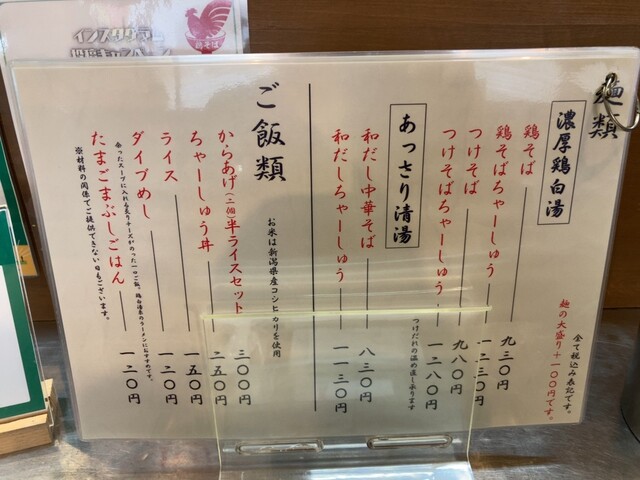 麺類
濃厚鶏白湯
鶏そば 九三〇円
鶏そばちゃーしゅう 一二三〇円
つけそば 九八〇円
つけそばちゃーしゅう 一二八〇円
つけだれの温め直し承ります
全て税込み表記です。
麺の大盛り+一〇〇円です。
あっさり清湯
和だし中華そば 八三〇円
和だしちゃーしゅう 一一三〇円
ご飯類
お米は新潟県産コシヒカリを使用
からあげ(二個)半ライスセット 三〇〇円
ちゃーしゅう丼 二五〇円
ライス 一五〇円
ダイブめし 一二〇円
余ったスープに入れる炙りチーズがのった一口ご飯。鶏白湯系のラーメンにおすすめです。
たまごまぶしごはん 一二〇円
※材料の関係でご提供できない日もございます。
鶏そば